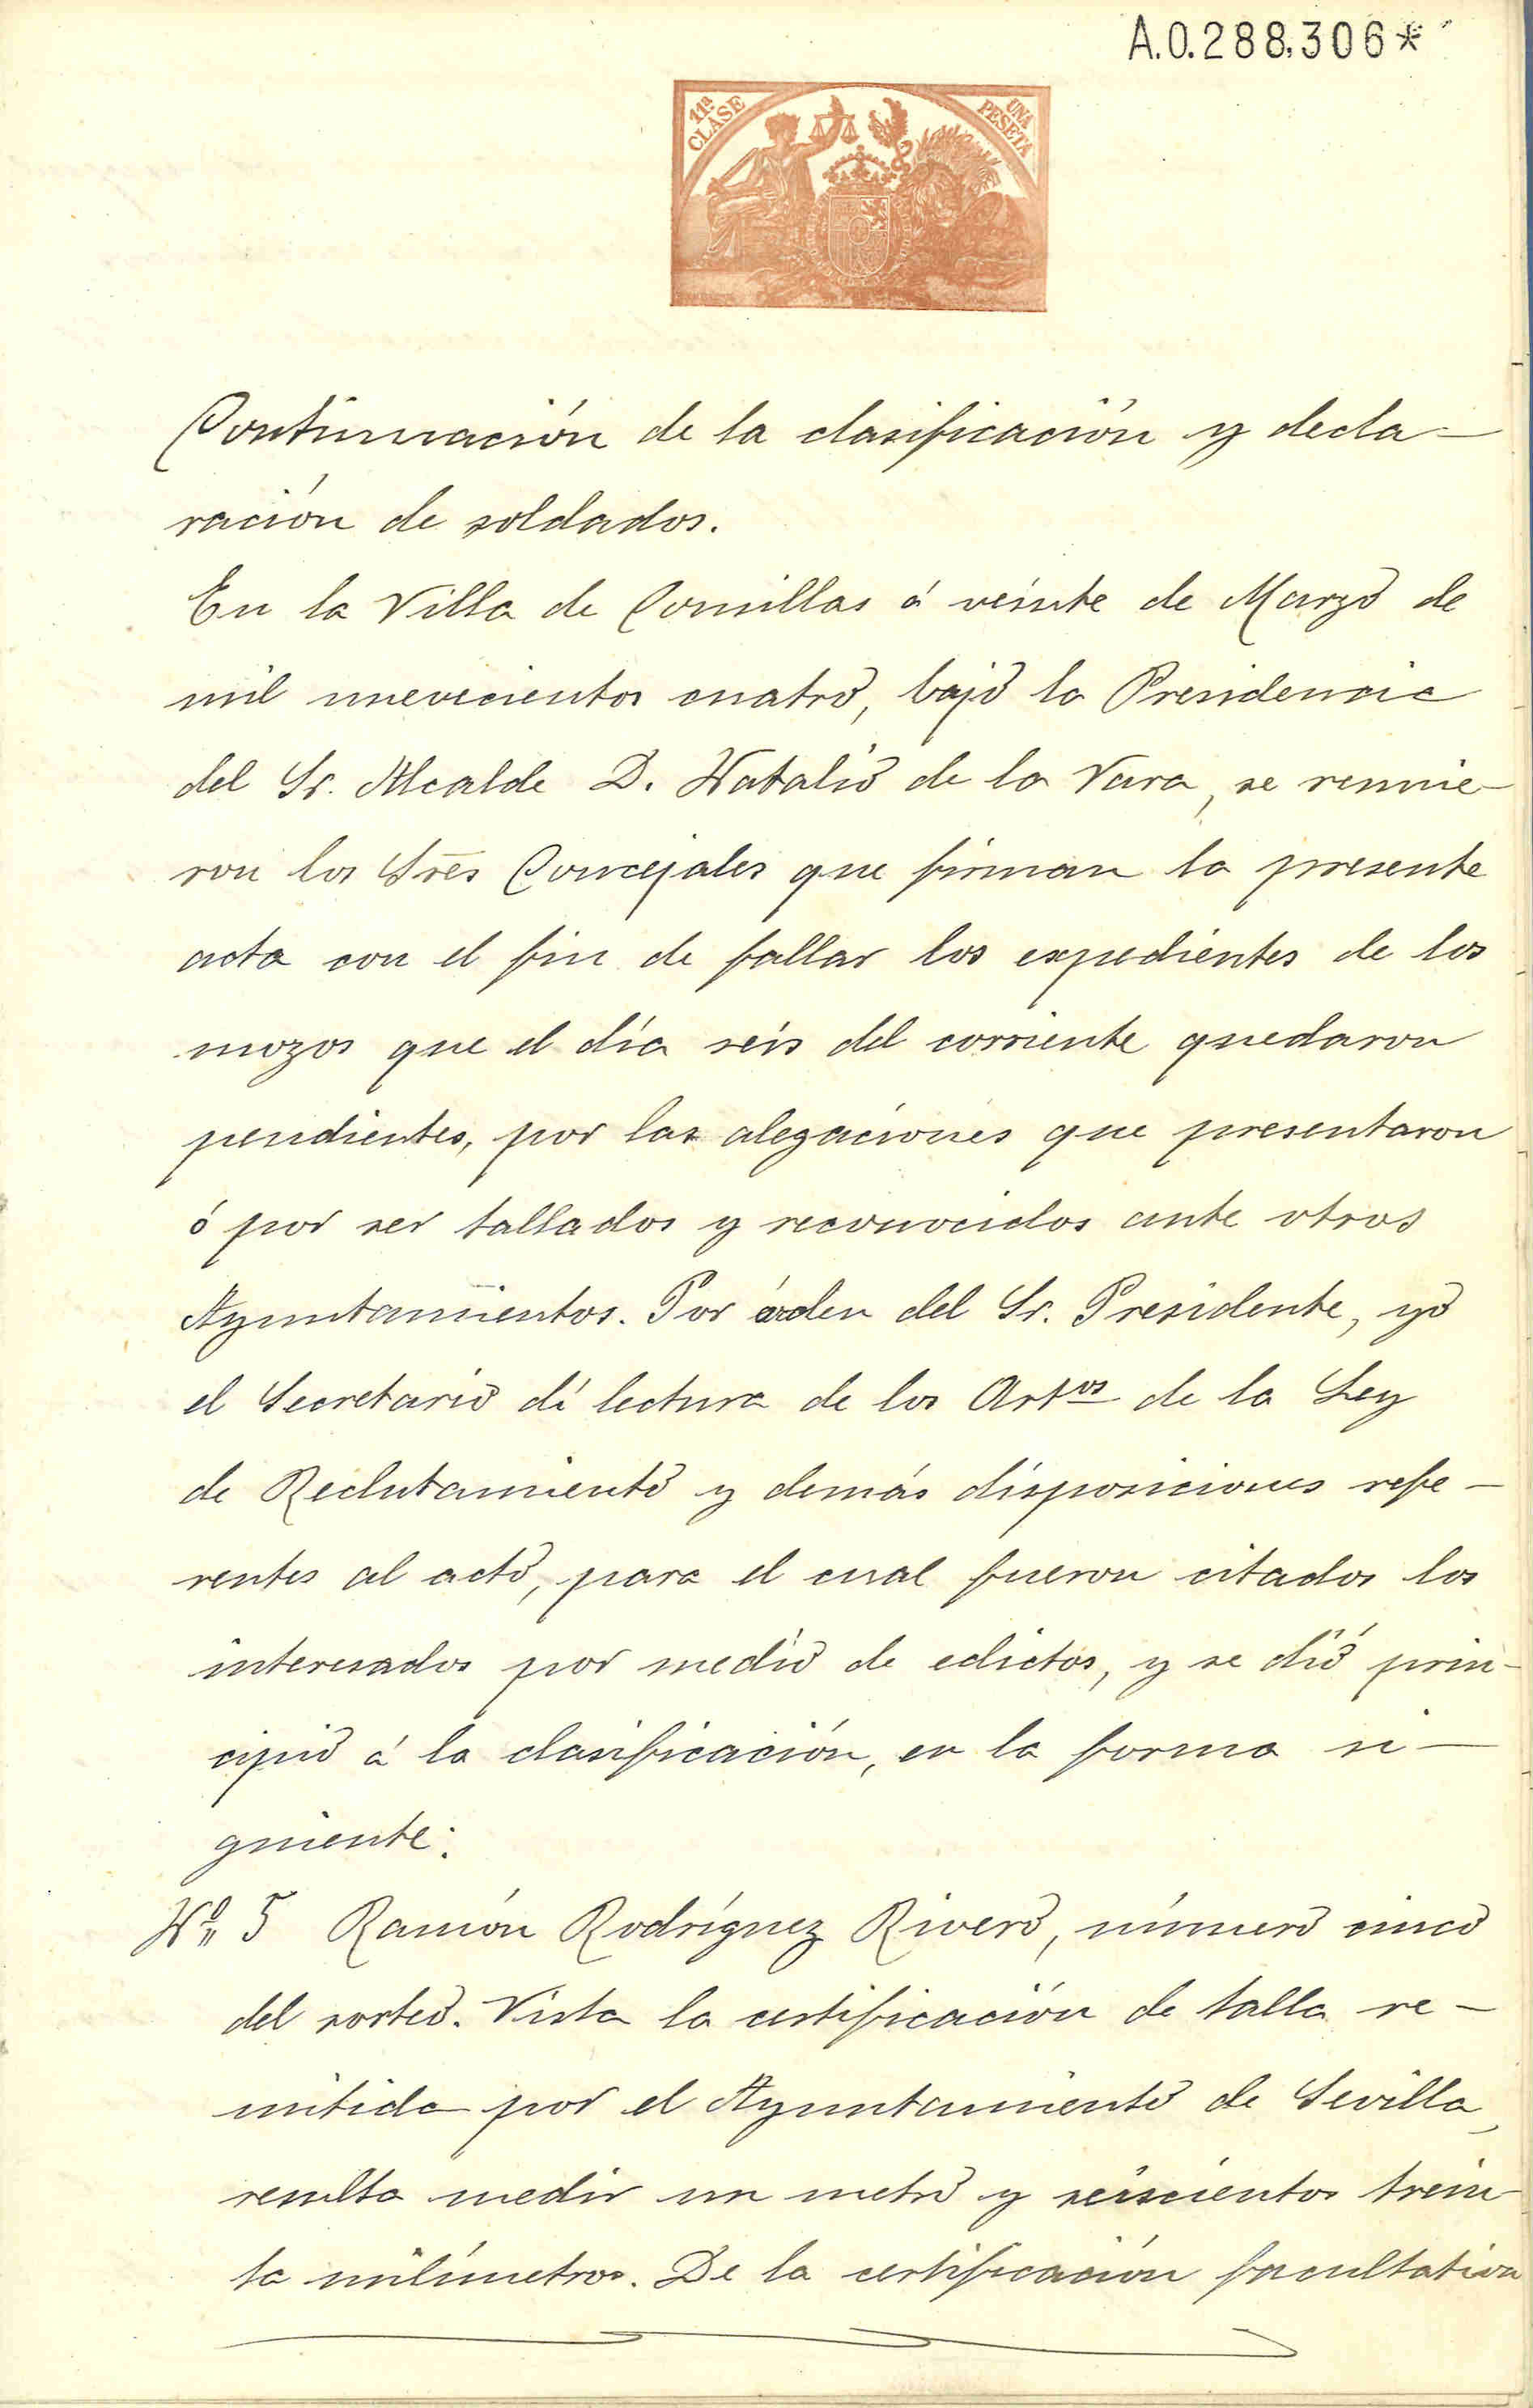 A.0.288,306*
11ª CLASE
UNA PESETA
Continuación de la clasificación y decla-
ración de soldados.
En la Villa de Comillas á veinte de Marzo de
mil nuevecientos cuatro, bajo la Presidencia
del Sr. Alcalde D. Natalio de la Vara, se reunie-
ron los Sres Concejales que firman la presente
acta con el fin de fallar los expedientes de los
mozos que el día seis del corriente quedaron
pendientes, por las alegaciones que presentaron
ó por ser tallados y reconocidos ante otros
Ayuntamientos. Por órden del Sr. Presidente, yo
el Secretario dí lectura de los Artos de la Ley
de Reclutamiento y demás disposiciones refe-
rentes al acto, para el cual fueron citados los
interesados por medio de edictos, y se dió prin-
cipio á la clasificación, en la forma si-
guiente:
Nº 5 Ramón Rodríguez Rivero, número cinco
del sorteo. Vista la certificación de talla re-
mitida por el Ayuntamiento de Sevilla,
resulta medir un metro y seiscientos trein-
ta milímetros. De la certificación facultativa